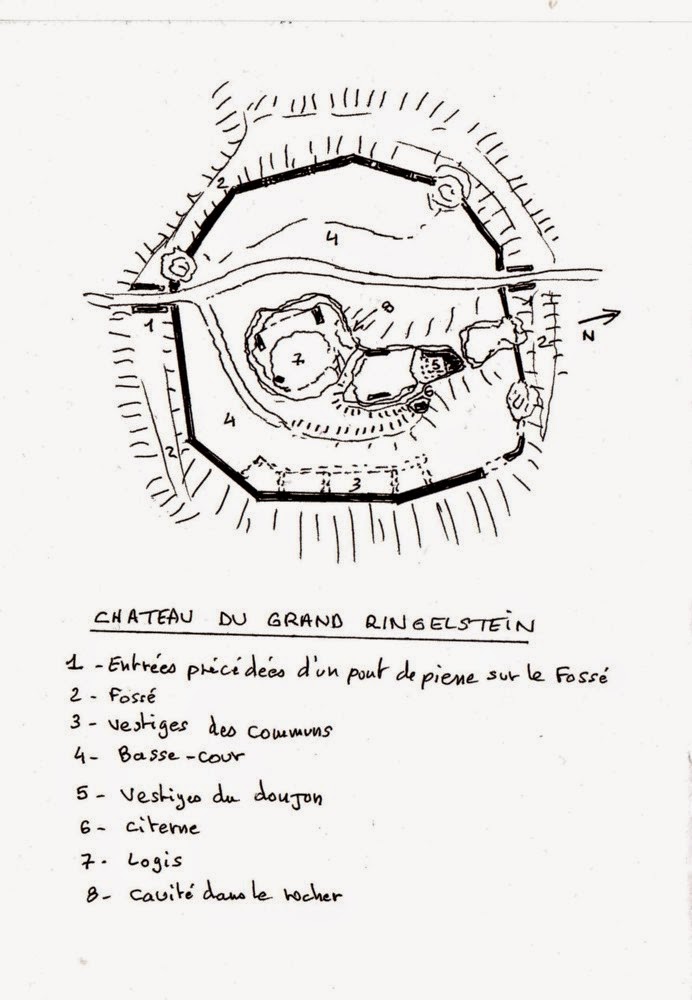 2
4
8
1
N
2
7
5
6
4
2
3
CHATEAU DU GRAND RINGELSTEIN
1 - Entrées précédées d'un pont de pierre sur le Fossé
2 - Fossé
3 - Vestiges des communs
4 - Basse-cour
5 - Vestiges du donjon
6 - Citerne
7 - Logis
8 - Cavité dans le rocher